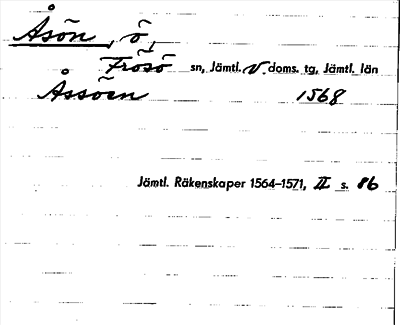 Åsön, ö,
Frösö sn, Jämtl. v. doms. tg, Jämtl. län
Åssöen 1568
Jämtl. Räkenskaper 1564–1571, II s. 86